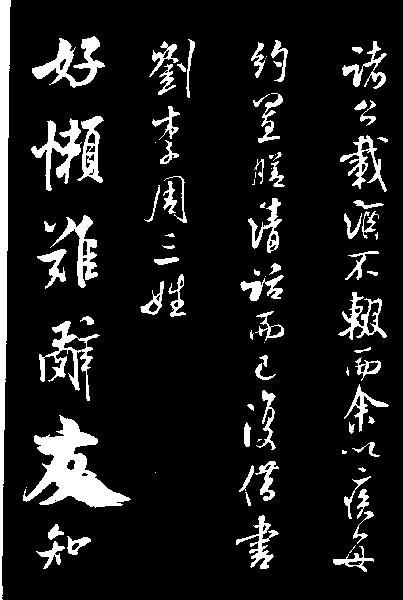 諸公載酒不輟而余以疾每
約置膳清話而已復借書
劉李周三姓
好懶難辭友知